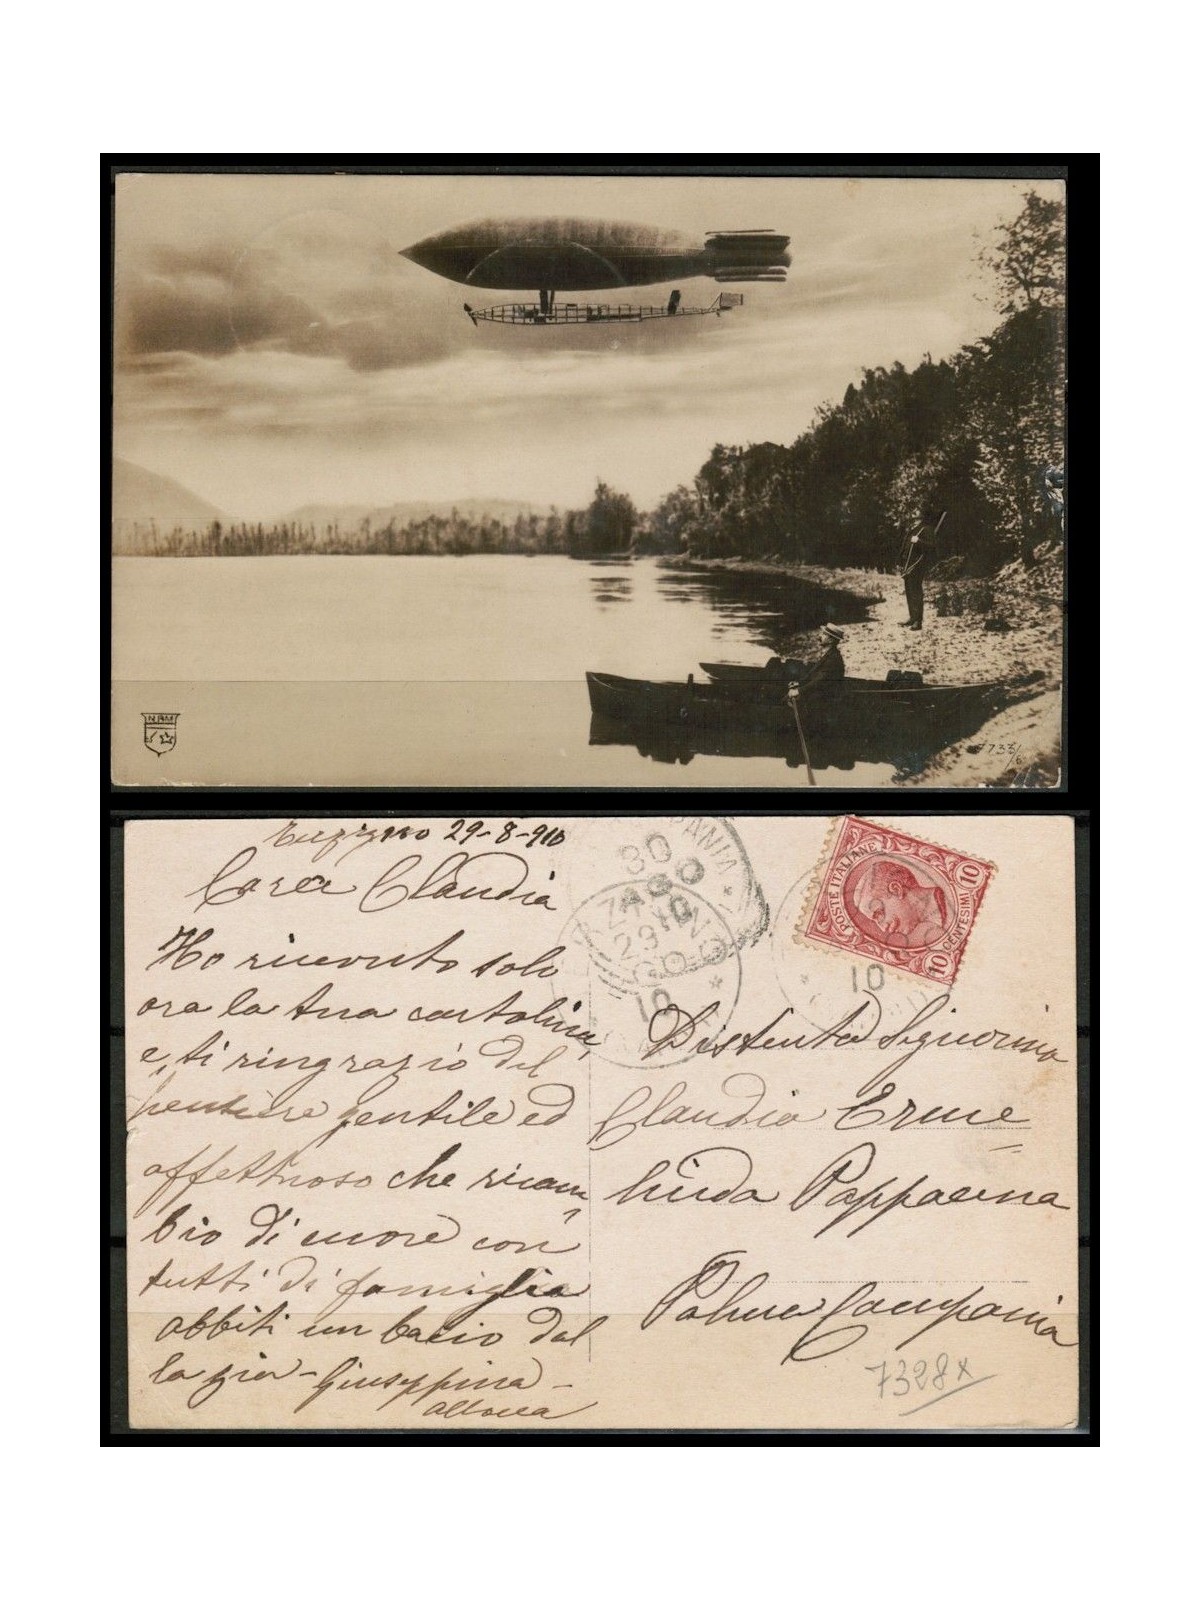 N.P.M
7733/6
29-8-910
Cara Claudia
Ho ricevuto solo
ora la tua cartolina,
e ti ringrazio del
pensiere gentile ed
affettuoso che ricam
bio di cuore con
tutti di famiglia
abbiti un bacio dal
la zia - Giuseppina -
PANIA
30
AGO
10
29
10
POSTE ITALIANE
10
CENTESIMI
10
10
Distinta Signorina
Claudia Erme
linda Pappacena
Palma Campania
7328x